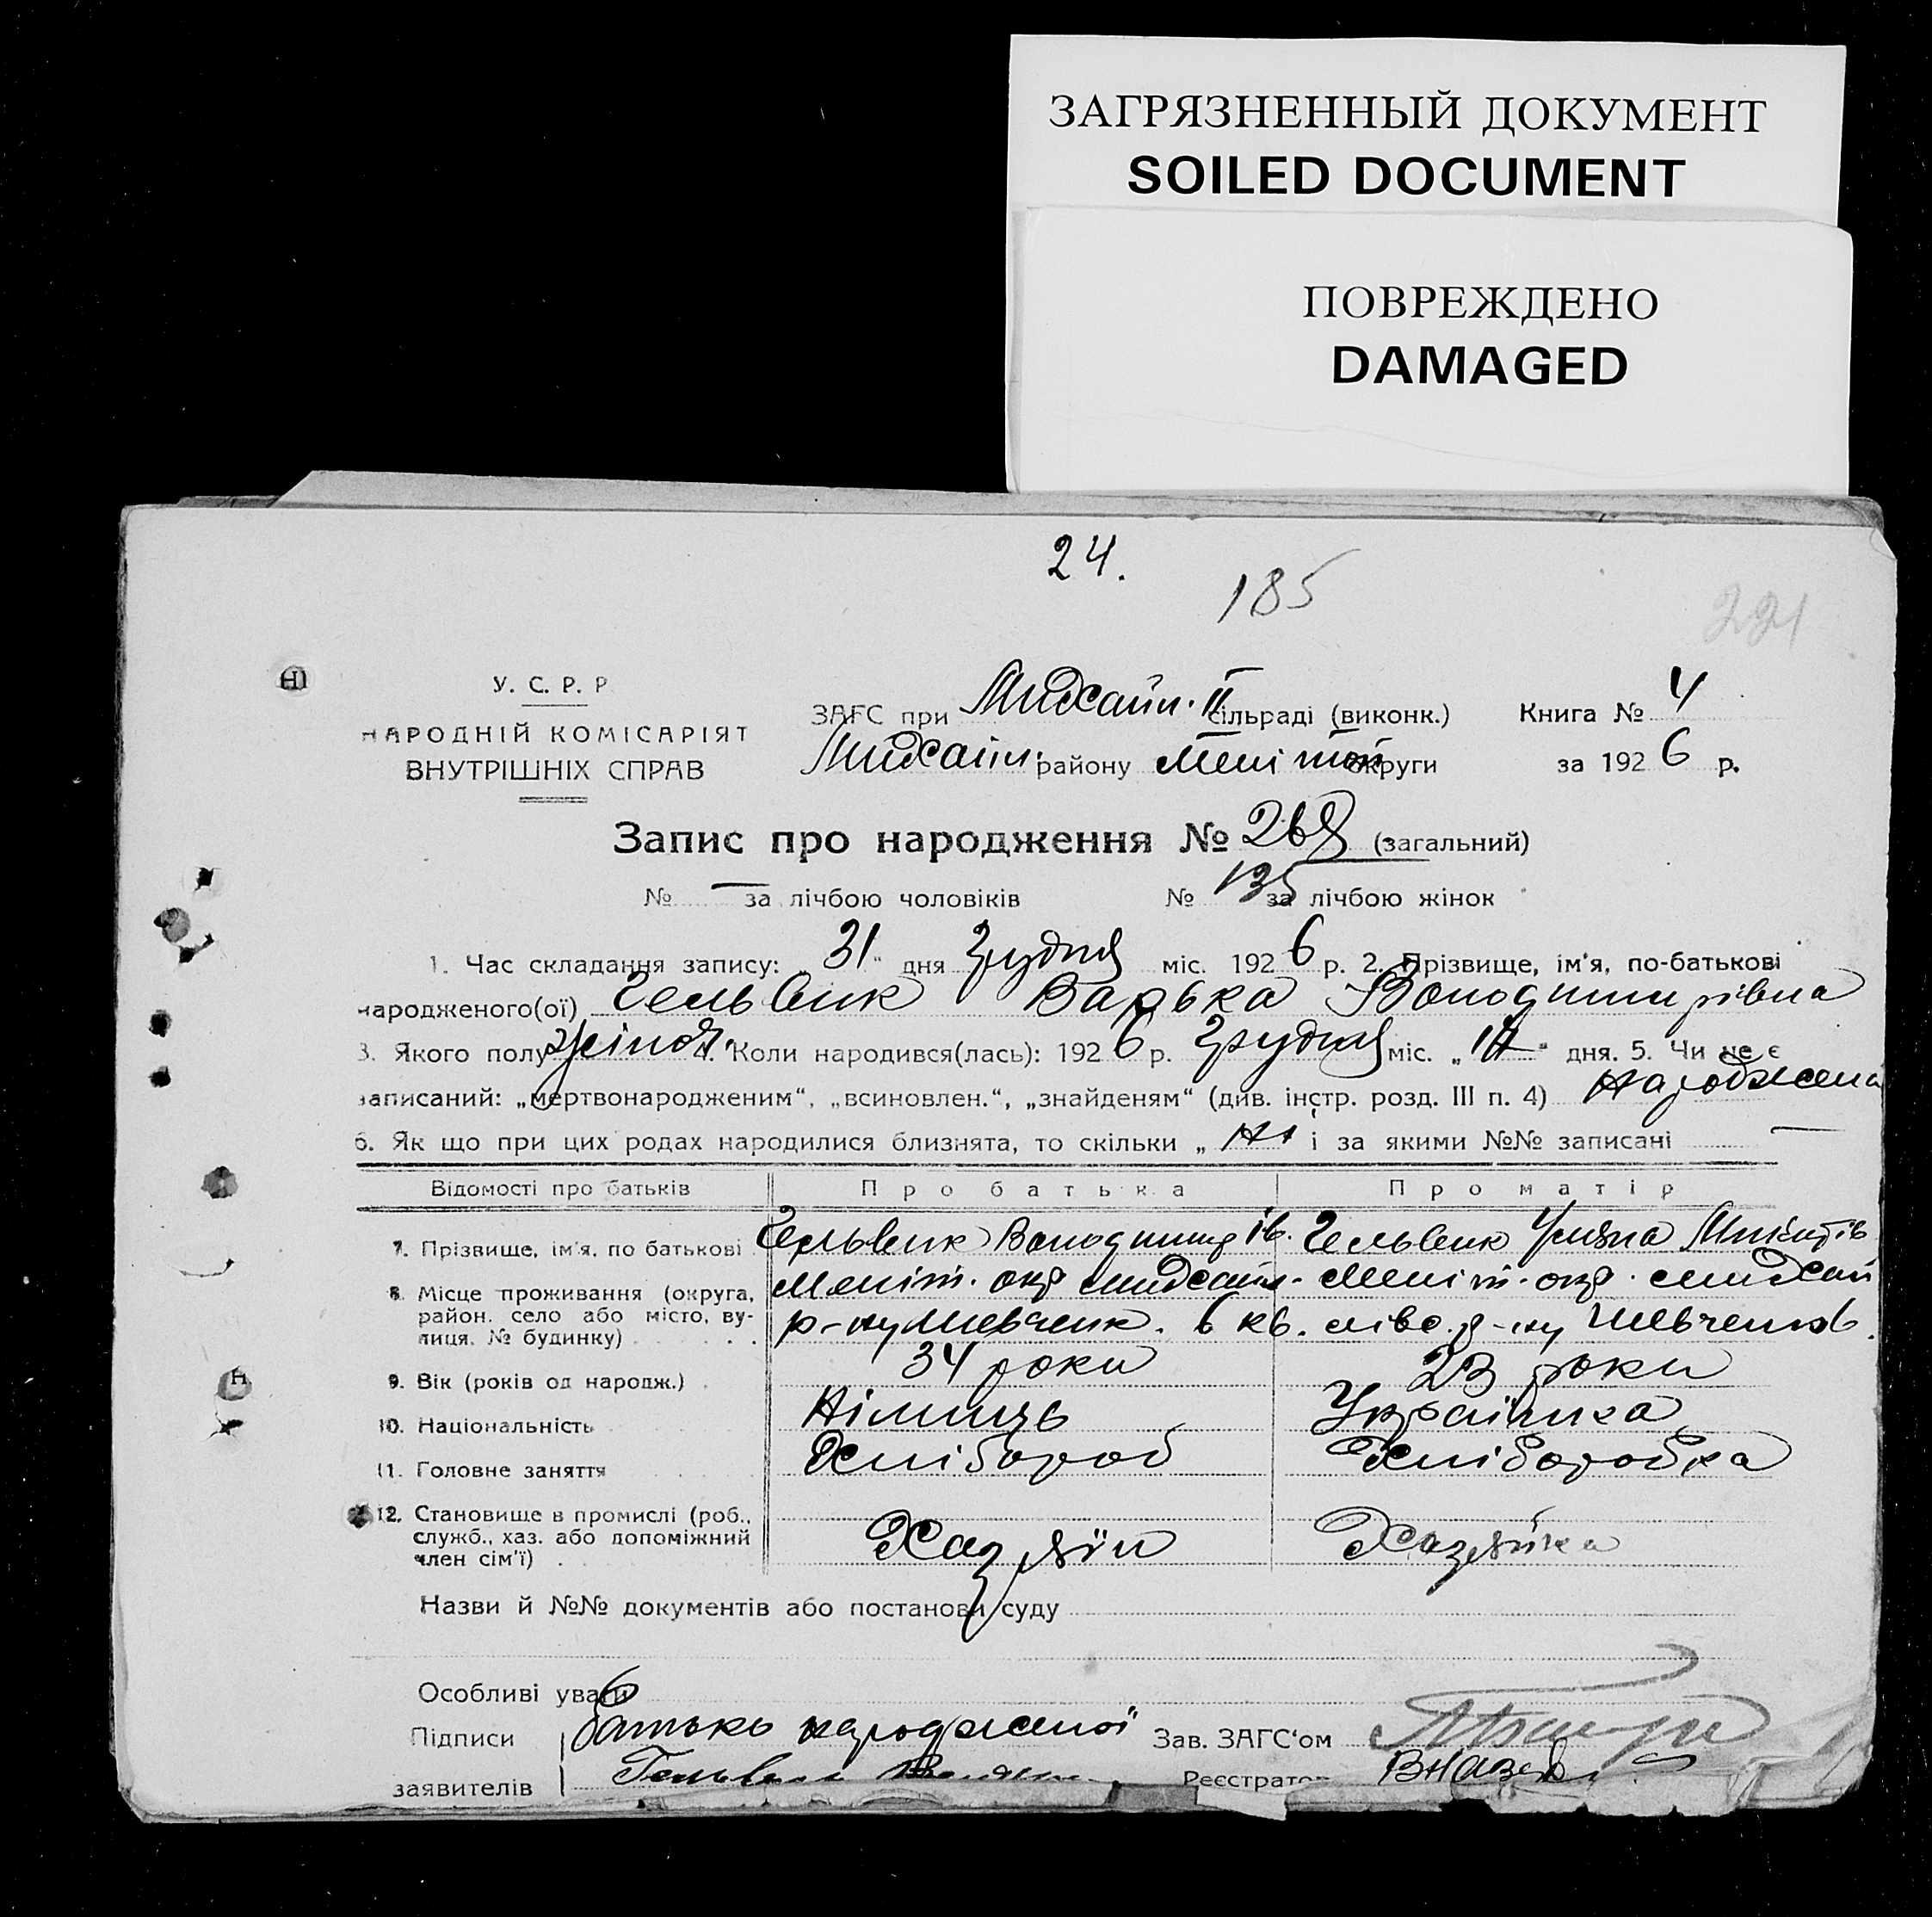 ЗАГРЯЗНЕННЫЙ ДОКУМЕНТ
SOILED DOCUMENT
ПОВРЕЖДЕНО
DAMAGED
24.
185
221
У. С. Р. Р
НАРОДНІЙ КОМІСАРІЯТ
ВНУТРІШНІХ СПРАВ
ЗАГС при Михайл. II сільраді (виконк.) Книга № 4
Михайл. району Меліт округи за 1926 р.
Запис про народження № 268 (загальний)
№ — за лічбою чоловіків № 135 за лічбою жінок
1. Час складання запису: „31" дня Грудня міс. 1926 р. 2. Прізвище, ім'я, по-батькові
народженого(ої) Гельвик Варька Володимирівна
3. Якого полу жіноч. 4. Коли народився(лась): 1926 р. Грудня міс. „14" дня. 5. Чи не є
записаний: „мертвонародженим", „всиновлен.", „знайденям" (див. інстр. розд. III п. 4) Народжена
6. Як що при цих родах народилися близнята, то скільки „ Ні і за якими №№ записані —
Відомості про батьків Про батька Про матір
7. Прізвище, ім'я, по батькові Гельвик Володимир Ів. Гельвик Уляна Микитів
8. Місце проживання (округа, район, село або місто, вулиця, № будинку) Меліт. окр Михайл. Меліт. окр. Михай
р-ну Шевченк. р-ну Шевченків.
9. Вік (років од народж.) 34 роки 23 роки
10. Національність Німиць Українка
11. Головне заняття Хлібороб Хліборобка
12. Становище в промислі (роб., служб., хаз. або допоміжний член сім'ї) Хазяїн Хазяйка
Назви й №№ документів або постанови суду
Особливі уваги
Підписи Батько народженої Зав. ЗАГС'ом
заявителів Гельвик Реєстратор